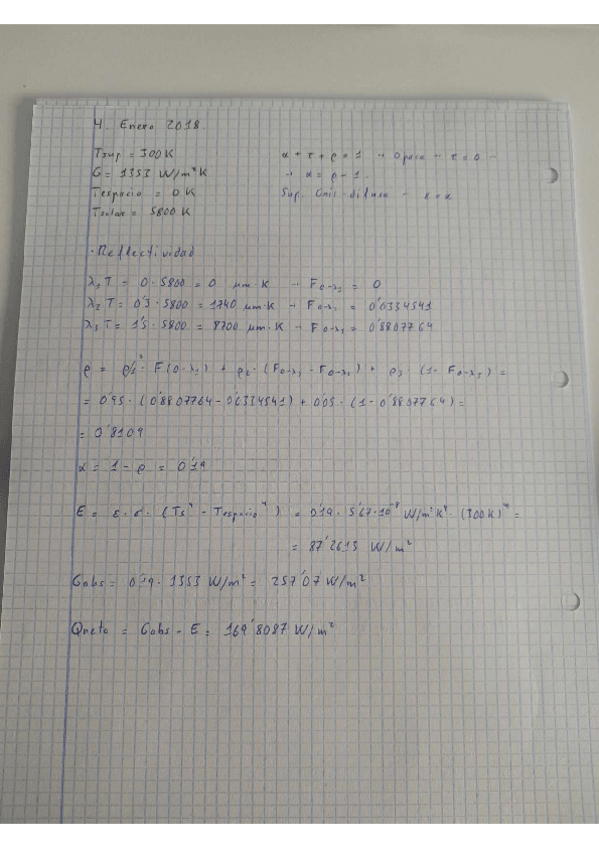 4. Enero 2018.
Tsup = 300K
α + τ + ρ = 1 → Opaca → τ = 0 →
G = 1353 W/m²K
→ α = ρ - 1.
Tespacio = 0 K
Sup. Gris-difusa →
Tsolar = 5800 K
· Reflectividad
λ₁T = 0 · 5800 = 0 μm·K → F₀₋λ₁ = 0
λ₂T = 0'3 · 5800 = 1740 μm·K → F₀₋λ₂ = 0'0334541
λ₃T = 1'5 · 5800 = 8700 μm·K → F₀₋λ₃ = 0'8807764
ρ = ρ₁ · F(0-λ₁) + ρ₂ · (F₀₋λ₃ - F₀₋λ₂) + ρ₃ · (1 - F₀₋λ₃) =
= 0'95 · (0'8807764 - 0'0334541) + 0'05 · (1 - 0'8807764) =
= 0'8109
α = 1 - ρ = 0'19
E = ε · σ · (Ts⁴ - Tespacio⁴) = 0'19 · 5'67·10⁻⁸ W/m²K⁴ · (300K)⁴ =
= 87'2613 W/m²
Gabs = 0'19 · 1353 W/m² = 257'07 W/m²
Qneto = Gabs - E = 169'8087 W/m²